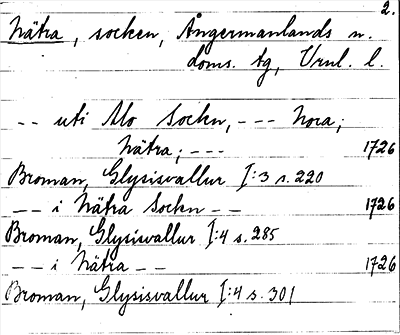 2.
Nätra, socken, Ångermanlands n.
doms. tg, Vrnl. l.
-- uti Mo Sockn, --- Nora;
Nätra; --- 1726
Broman, Glysisvallur I:3 s. 220
-- i Nätra Sockn -- 1726
Broman, Glysisvallur I:4 s. 285
-- i Nätra -- 1726
Broman, Glysisvallur I:4 s. 301